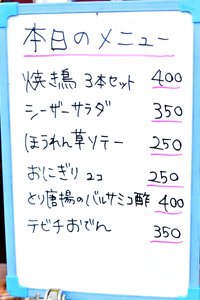 本日のメニュー
焼き鳥 3本セット 400
シーザーサラダ 350
ほうれん草ソテー 250
おにぎり 2コ 250
とり唐揚のバルサミコ酢 400
テビチおでん 350